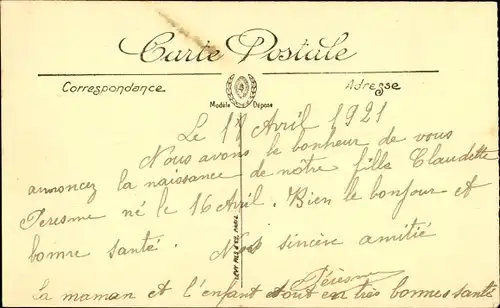 Carte Postale
Correspondance
Adresse
Modèle Déposé
Le 17 Avril 1921
Nous avons le bonheur de vous
annoncez la naissance de nôtre fille Claudette
Peresme né le 16 Avril. Bien le bonjour et
bonne santé. Nos sincère amitié
LEVY FILS & CIE, PARIS
La maman et l'enfant sont en très bonnes santé